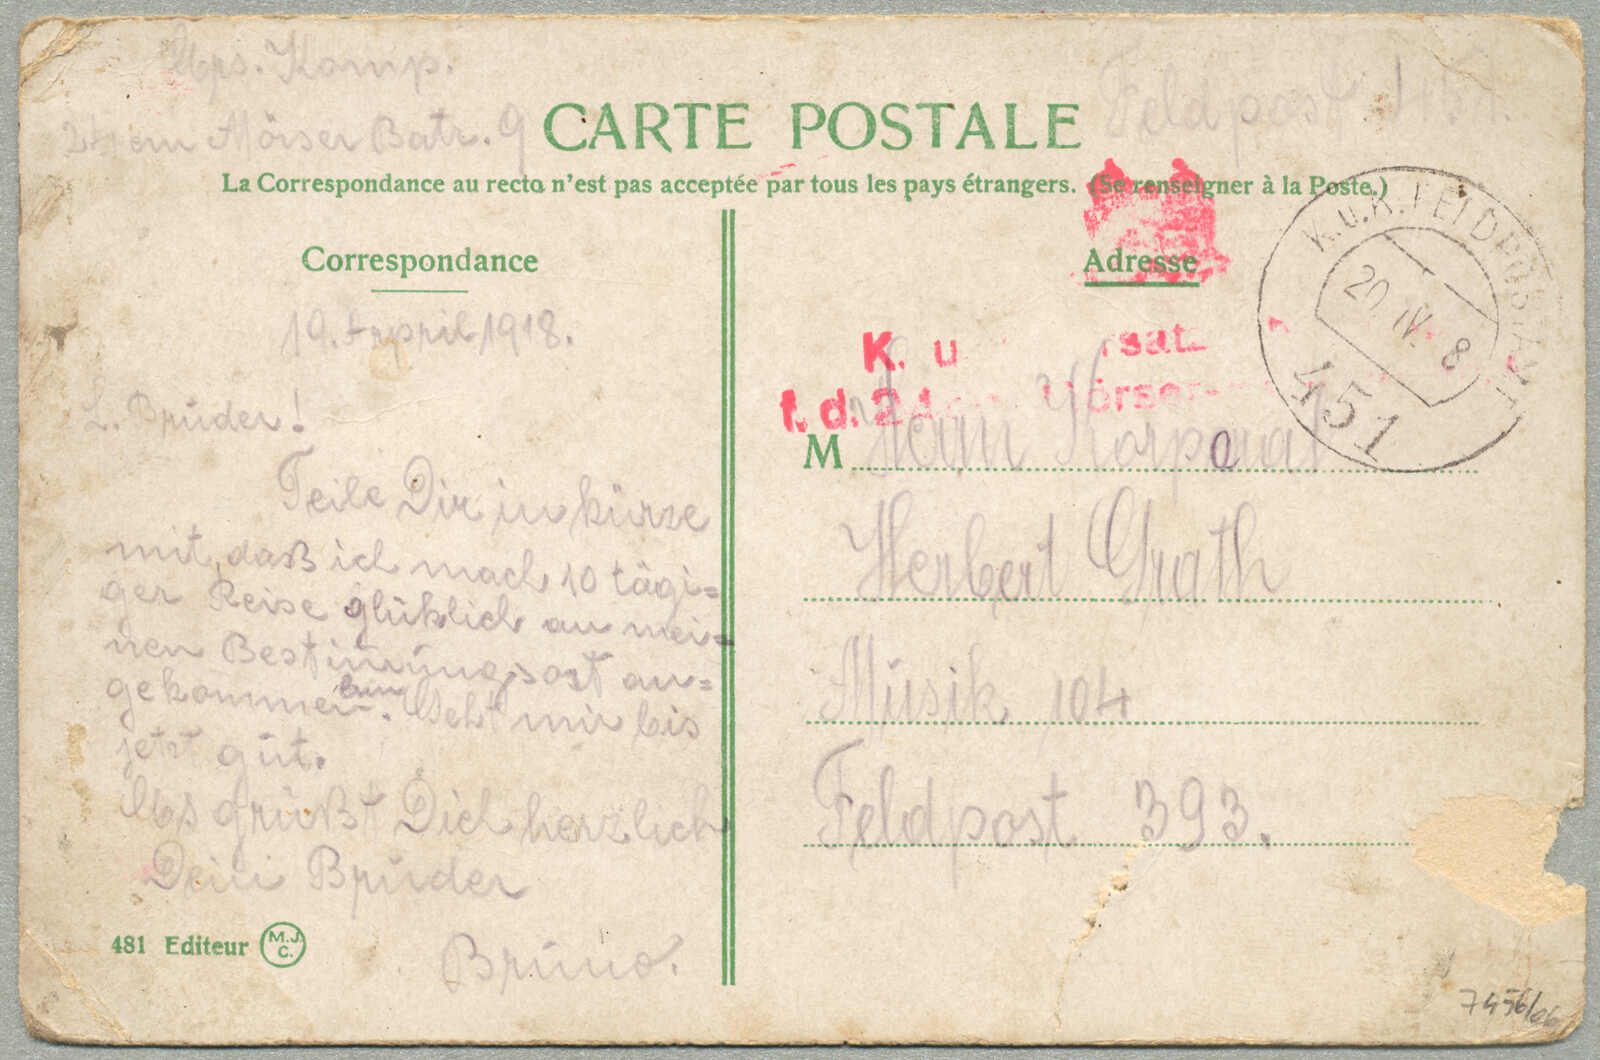 Komp.
24 cm Mörser Batr. 9
Feldpost
CARTE POSTALE
La Correspondance au recto n'est pas acceptée par tous les pays étrangers. (Se renseigner à la Poste.)
Correspondance
19. April 1918.
L. Brüder!
Teile Dir in kürze
mit, daß ich nach 10 tägi=
ger Reise glüklich an mei=
nen Bestimungsort an=
gekommen bin. Geht mir bis
jetzt gut.
Es grüßt Dich herzlich
Dein Brüder
Brüno.
481 Editeur M.J.C.
Adresse
K.u.K. FELDPOSTAMT
20. IV. 8
451
K. u
f. d. 24 Mörser
M Herrn Korporal
Herbert Grath
Müsik 104
Feldpost 393.
7456/06